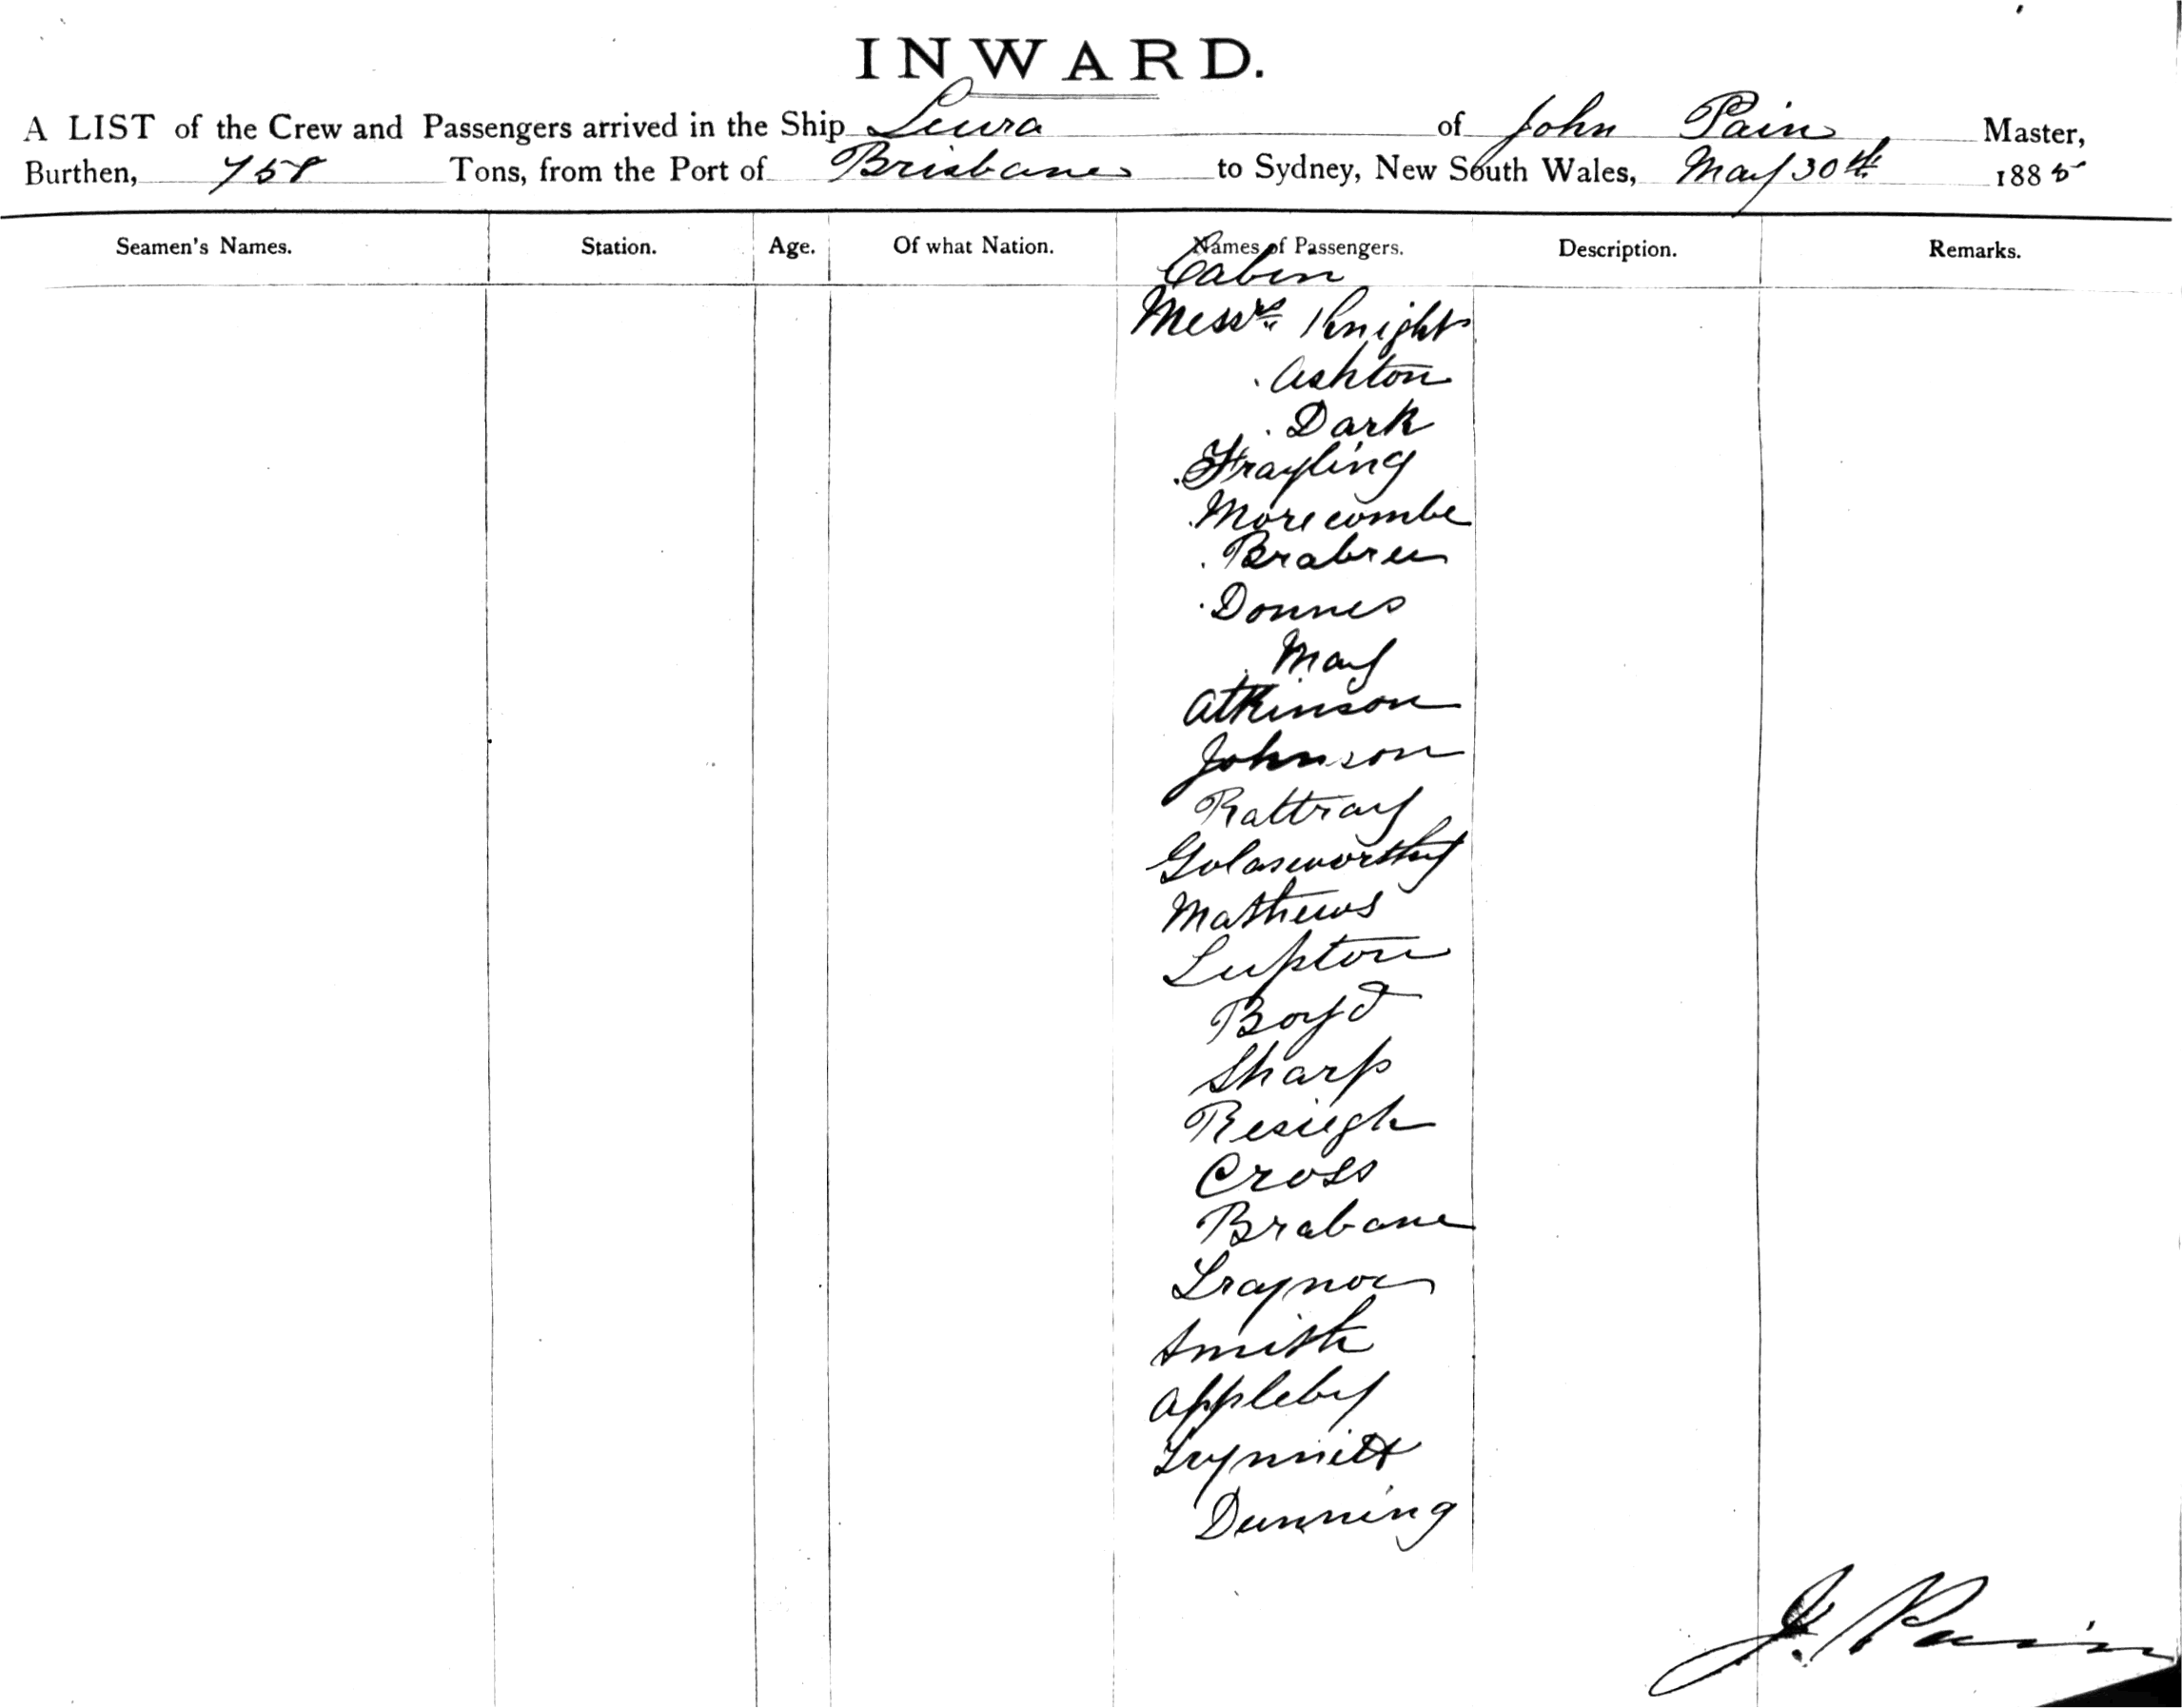 INWARD.
A LIST of the Crew and Passengers arrived in the Ship Leura of John Pain, Master,
Burthen, 758 Tons, from the Port of Brisbane to Sydney, New South Wales, May 30th 1885
Seamen's Names. Station. Age. Of what Nation. Names of Passengers. Description. Remarks.
Cabin
Messrs Knight
Ashton
Dark
Frayling
Morecombe
Donnes
May
Atkinson
Johnson
Rattray
Goldsworthy
Mathews
Lupton
Boyd
Sharp
Resiegh
Cross
Brabane
Traynor
Smith
Appleby
Dunning
J. Pain